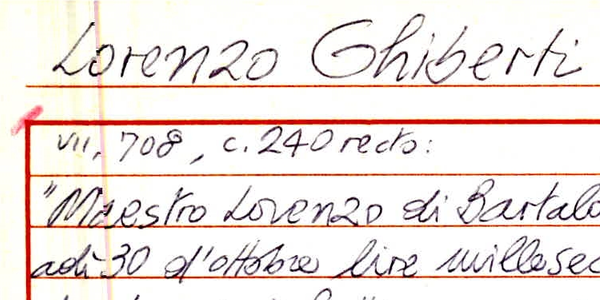 Lorenzo Ghiberti
VII, 708, c. 240 recto:
"Maestro Lorenzo di Bartalo
adì 30 d'ottobre lire millesec